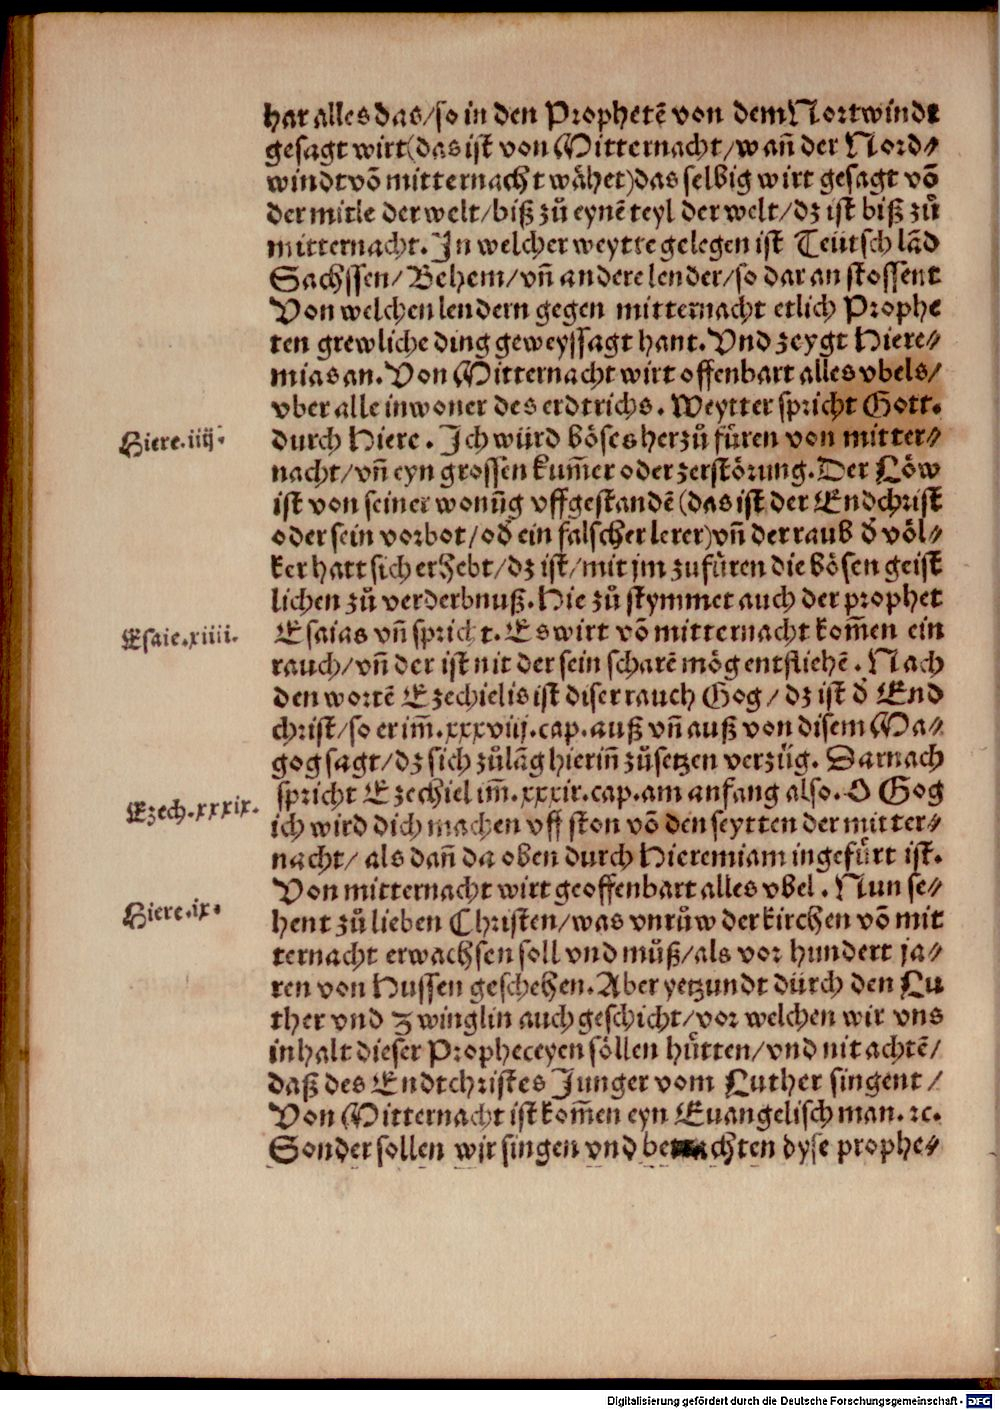 har alles das/so in den Prophetē von dem Nortwindt
gesagt wirt(das ist von Mitternacht/wañ der Nord⸗
windt võ mitternacht wähet)das selbig wirt gesagt võ
der mitle der welt/biß zů eynē teyl der welt/dz ist biß zů
mitternacht. In welcher weytte gelegen ist Teütsch lãd
Sachssen/Behem/vñ andere lender/so dar an stossent
Von welchen lendern gegen mitternacht etlich Prophe
ten grewliche ding geweyssagt hant. Vnd zeygt Hiere⸗
mias an. Von Mitternacht wirt offenbart alles vbels/
vber alle inwoner des erdtrichs. Weytter spricht Gott.
Hiere.iiij.
durch Hiere. Ich würd böses herzů füren von mitter⸗
nacht/vñ eyn grossen kum̃er oder zerstörung. Der Löw
ist von seiner wonũg vffgestandē(das ist der Endchrist
oder sein vorbot/od̓ ein falscher lerer)vñ der raub d̓ völ⸗
ker hatt sich erhebt/dz ist/mit jm zufüren die bösen geist
lichen zů verderbnuß. Hie zů stymmet auch der prophet
Esaie.xiiii.
Esaias vñ spricht. Es wirt võ mitternacht kom̃en ein
rauch/vñ der ist nit der sein scharē mög entfliehē. Nach
den wortē Ezechielis ist diser rauch Gog/dz ist d̓ End
christ/so er im̃.xxxviij.cap.auß vñ auß von disem Ma⸗
gog sagt/dz sich zůlãg hierin̄ zůsetzen verzüg. Darnach
Ezech.xxxix.
spricht Ezechiel im̃.xxxix.cap.am anfang also. O Gog
ich wird dich machen vff ston võ den seytten der mitter⸗
nacht/ als dañ da oben durch Hieremiam ingefürt ist.
Hiere.ix.
Von mitternacht wirt geoffenbart alles vbel. Nun se⸗
hent zů lieben Christen/was vnrůw der kirchen võ mit
ternacht erwachsen soll vnd můß/als vor hundert ja⸗
ren von Hussen geschehen. Aber yetzundt dürch den Lu
ther vnd Zwinglin auch geschicht/vor welchen wir vns
inhalt dieser Propheceyen söllen hütten/vnd nit achtē/
daß des Endtchristes Junger vom Luther singent/
Von Mitternacht ist kom̃en eyn Euangelisch man.ꝛc.
Sonder sollen wir singen vnd dyse prophe⸗
Digitalisierung gefördert durch die Deutsche Forschungsgemeinschaft - DFG